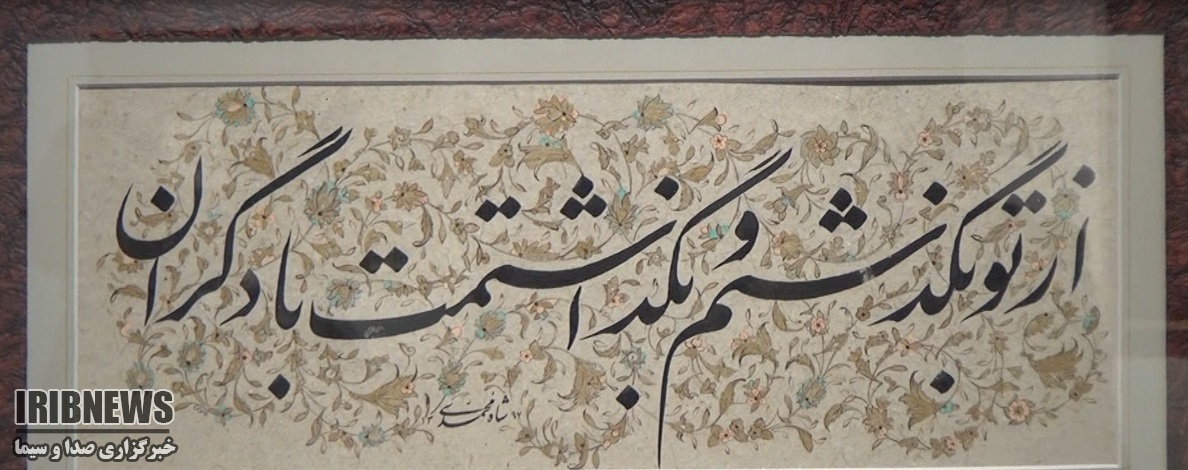 از تو بگذشتم و بگذاشتمت با دگران
IRIBNEWS
خبرگزاری صدا و سیما